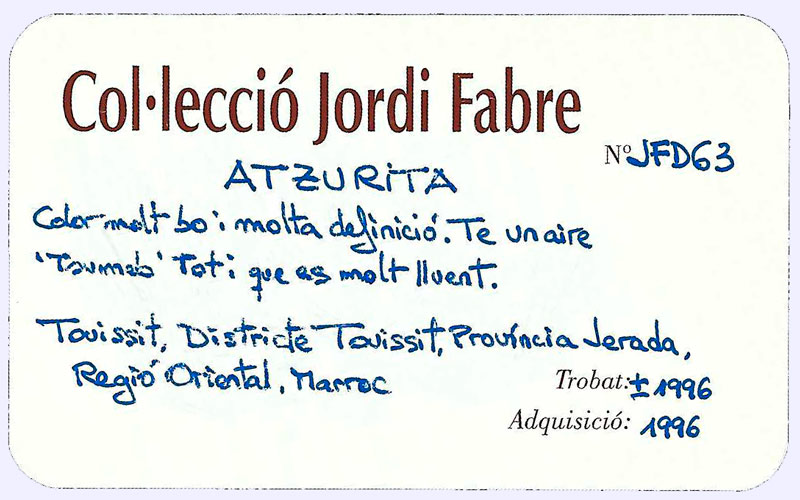 Col·lecció Jordi Fabre
Nº JFD63
ATZURITA
Color molt bo i molta definició. Te un aire
'Tsumeb' Tot i que as molt lluent.
Touissit, Districte Touissit, Província Jerada,
Regió Oriental, Marroc
Trobat: ± 1996
Adquisició: 1996